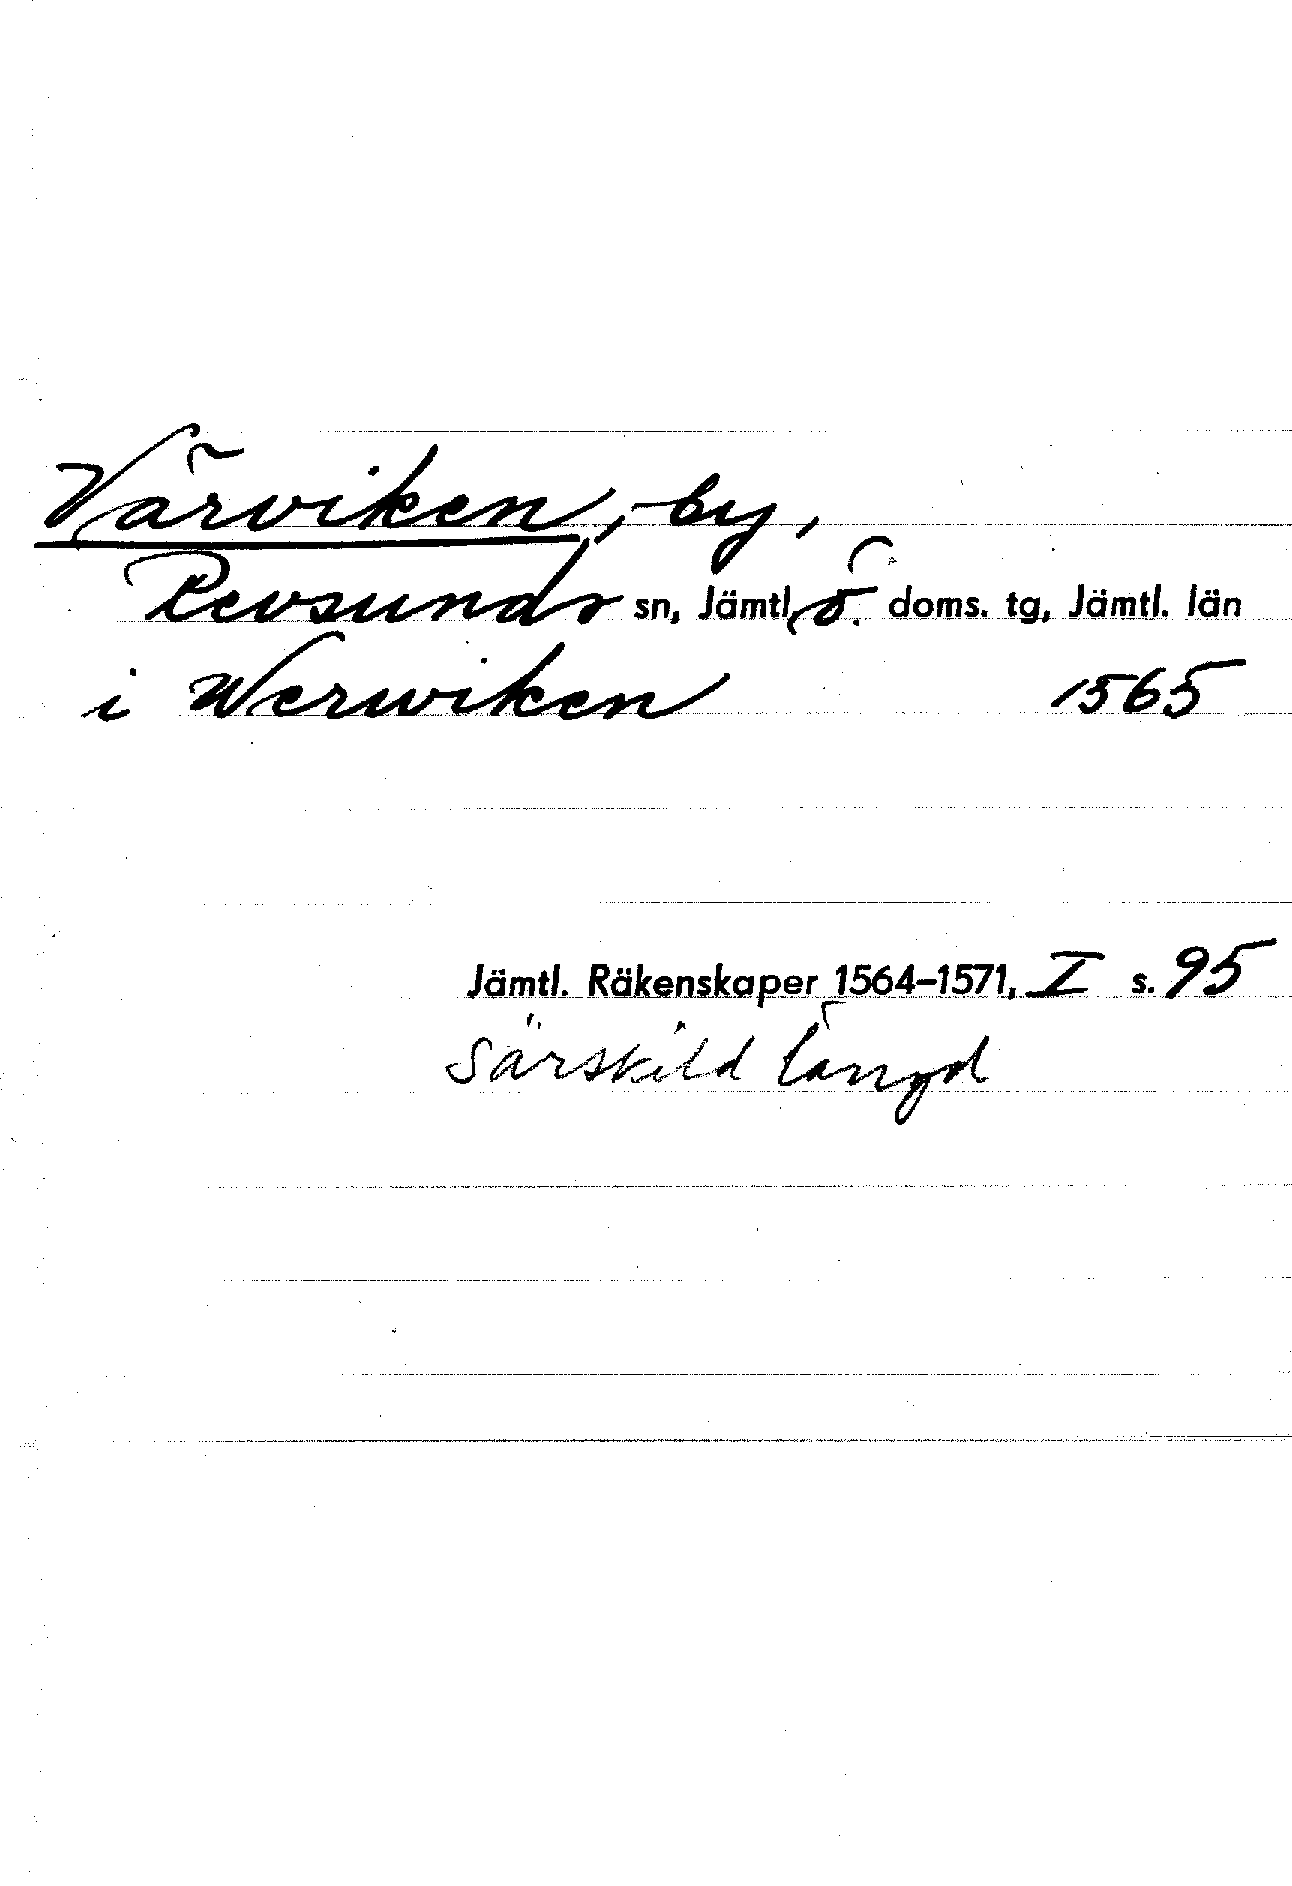 Värviken, by,
Revsunds sn, Jämtl, ö. doms. tg, Jämtl. län
i Werwiken 1565
Jämtl. Räkenskaper 1564–1571, I s. 95
Särskild längd